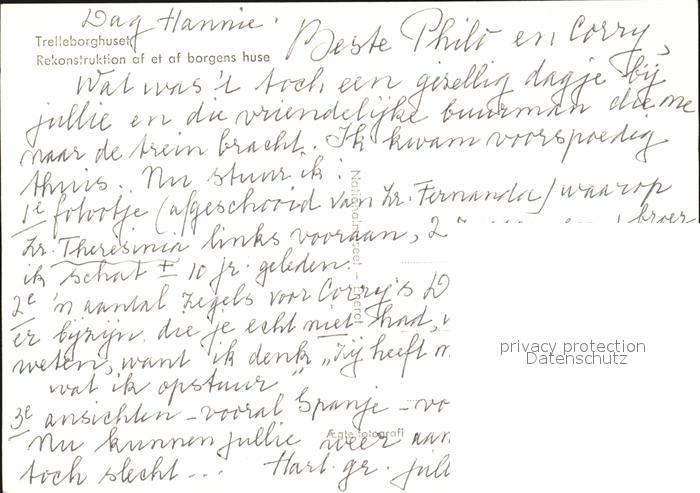 Dag Hannie.
Trelleborghuset
Rekonstruktion af et af borgens huse
Beste Philo en Corry,
Wat was 't toch een gezellig dagje bij
jullie en die vriendelijke buurman die me
naar de trein bracht. Ik kwam voorspoedig
thuis. Nu stuur ik:
1e fotootje (afgeschooid van Zr. Fernanda) waarop
Zr. Theresinia links vooraan, 2 broer
ik schat ± 10 jr. geleden.
2e 'n aantal zegels voor Corry's
er bijzijn die je echt niet had,
weten, want ik denk „Zij heeft
wat ik opstuur"
3e ansichten - vooral Spanje - vo
Nu kunnen jullie weer aan
toch slecht... Hart. gr. jull
Nationalmuseet - Eneret
Ægte fotografi
privacy protection
Datenschutz